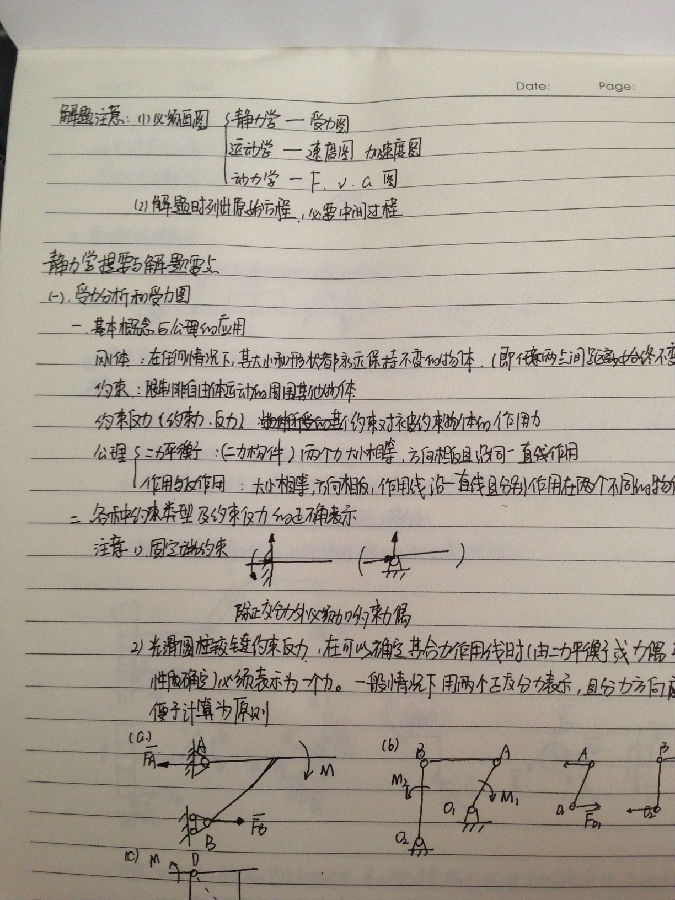 Date: Page:
解题注意:(1)必须画图 静力学—受力图
运动学—速度图 加速度图
动力学—F、v、a 图
(2)解题时列出原始方程,必要中间过程
静力学提要与解题要点
(一).受力分析和受力图
一.基本概念与公理的应用
刚体:在任何情况下,其大小和形状都永远保持不变的物体.(即任意两点间距离始终不变
约束:限制非自由体运动的周围其他物体
约束反力(约束力.反力) 约束对被约束物体的作用力
公理 二力平衡:(二力构件)两个力大小相等,方向相反且沿同一直线作用
作用与反作用:大小相等,方向相反,作用线沿一直线且分别作用在两个不同的物体
二 各种约束类型及约束反力的正确表示
注意 1)固定端约束 ( )
除正交分力外必须加约束力偶
2)光滑圆柱铰链约束反力,在可以确定其合力作用线时(由二力平衡或力偶
性质确定)必须表示为一个力。一般情况下用两个正交分力表示,且分力方向
便于计算为原则
(a) (b)
FA A M B A A B
M2 M1
O1 O1 FO1 O2
B FB O2
(c) M D